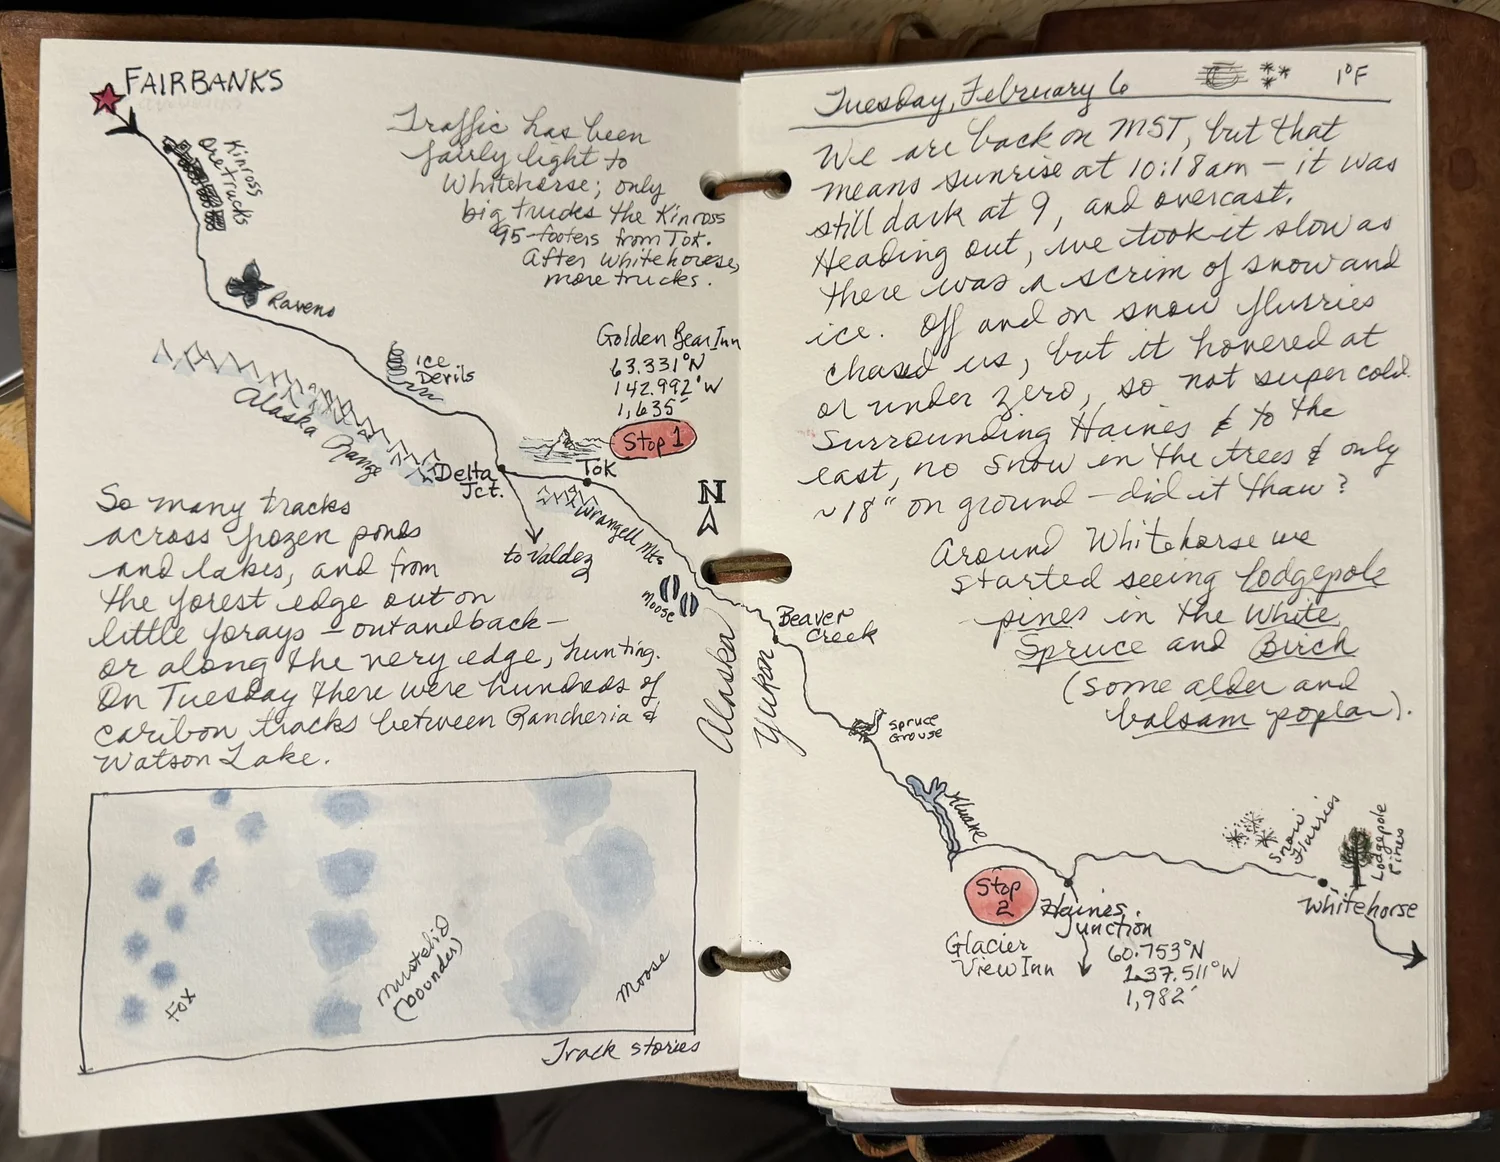 FAIRBANKS
Kinross
Ore trucks
Traffic has been
fairly light to
Whitehorse; only
big trucks the Kinross
95-footers from Tok.
After Whitehorse,
more trucks.
Ravens
Ice
Devils
Alaska Range
Golden Bear Inn
63.331°N
142.992°W
1,635'
Stop 1
Delta
Jct.
Tok
to Valdez
Wrangell Mts
N
Moose
So many tracks
across frozen ponds
and lakes, and from
the forest edge out on
little forays - out and back -
or along the very edge, hunting.
On Tuesday there were hundreds of
caribou tracks between Rancheria &
Watson Lake.
Fox
mustelid
(bounder)
Moose
Track stories
Alaska
Yukon
Tuesday, February 6 1°F
We are back on MST, but that
means sunrise at 10:18am - it was
still dark at 9, and overcast.
Heading out, we took it slow as
there was a scrim of snow and
ice. Off and on snow flurries
chased us, but it hovered at
or under zero, so not super cold.
Surrounding Haines & to the
east, no snow in the trees & only
~18" on ground - did it thaw?
Around Whitehorse we
started seeing lodgepole
pines in the White
Spruce and Birch
(some alder and
balsam poplar).
Beaver
Creek
Spruce
Grouse
Kluane
Stop
2
Glacier
View Inn
Haines
Junction
60.753°N
137.511°W
1,982'
Snow
Flurries
Lodgepole
Pines
Whitehorse